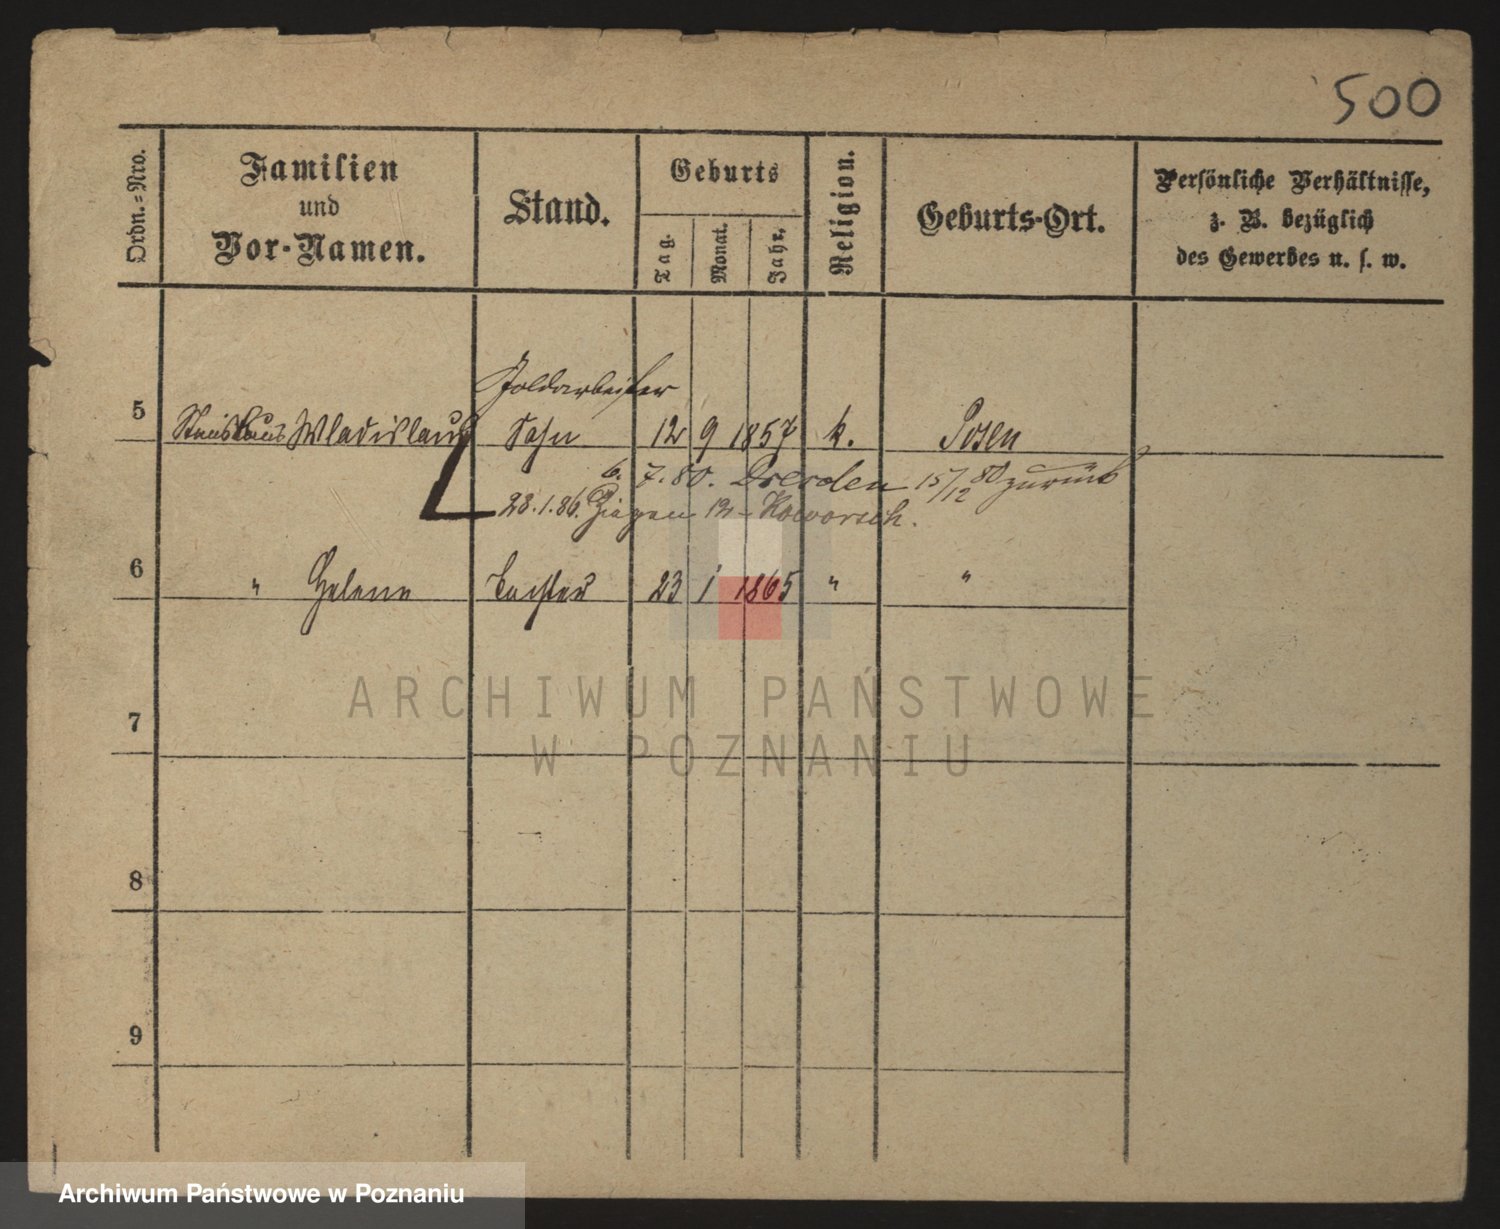 500
Ordn.-Nro.
Familien
und
Vor-Namen.
Stand.
Geburts
Tag.
Monat.
Jahr.
Religion.
Geburts-Ort.
Persönliche Verhältnisse,
z. B. bezüglich
des Gewerbes u. s. w.
Goldarbeiter
5 Stanislaus Wladislaus Sohn 12 9 1857 k. Posen
6. 7. 80. Dresden 15/12 80 zurück
28. 1. 86. 12
6 " Helene Tochter 23 1 1865 " "
7
8
9
ARCHIWUM PAŃSTWOWE
W POZNANIU
Archiwum Państwowe w Poznaniu